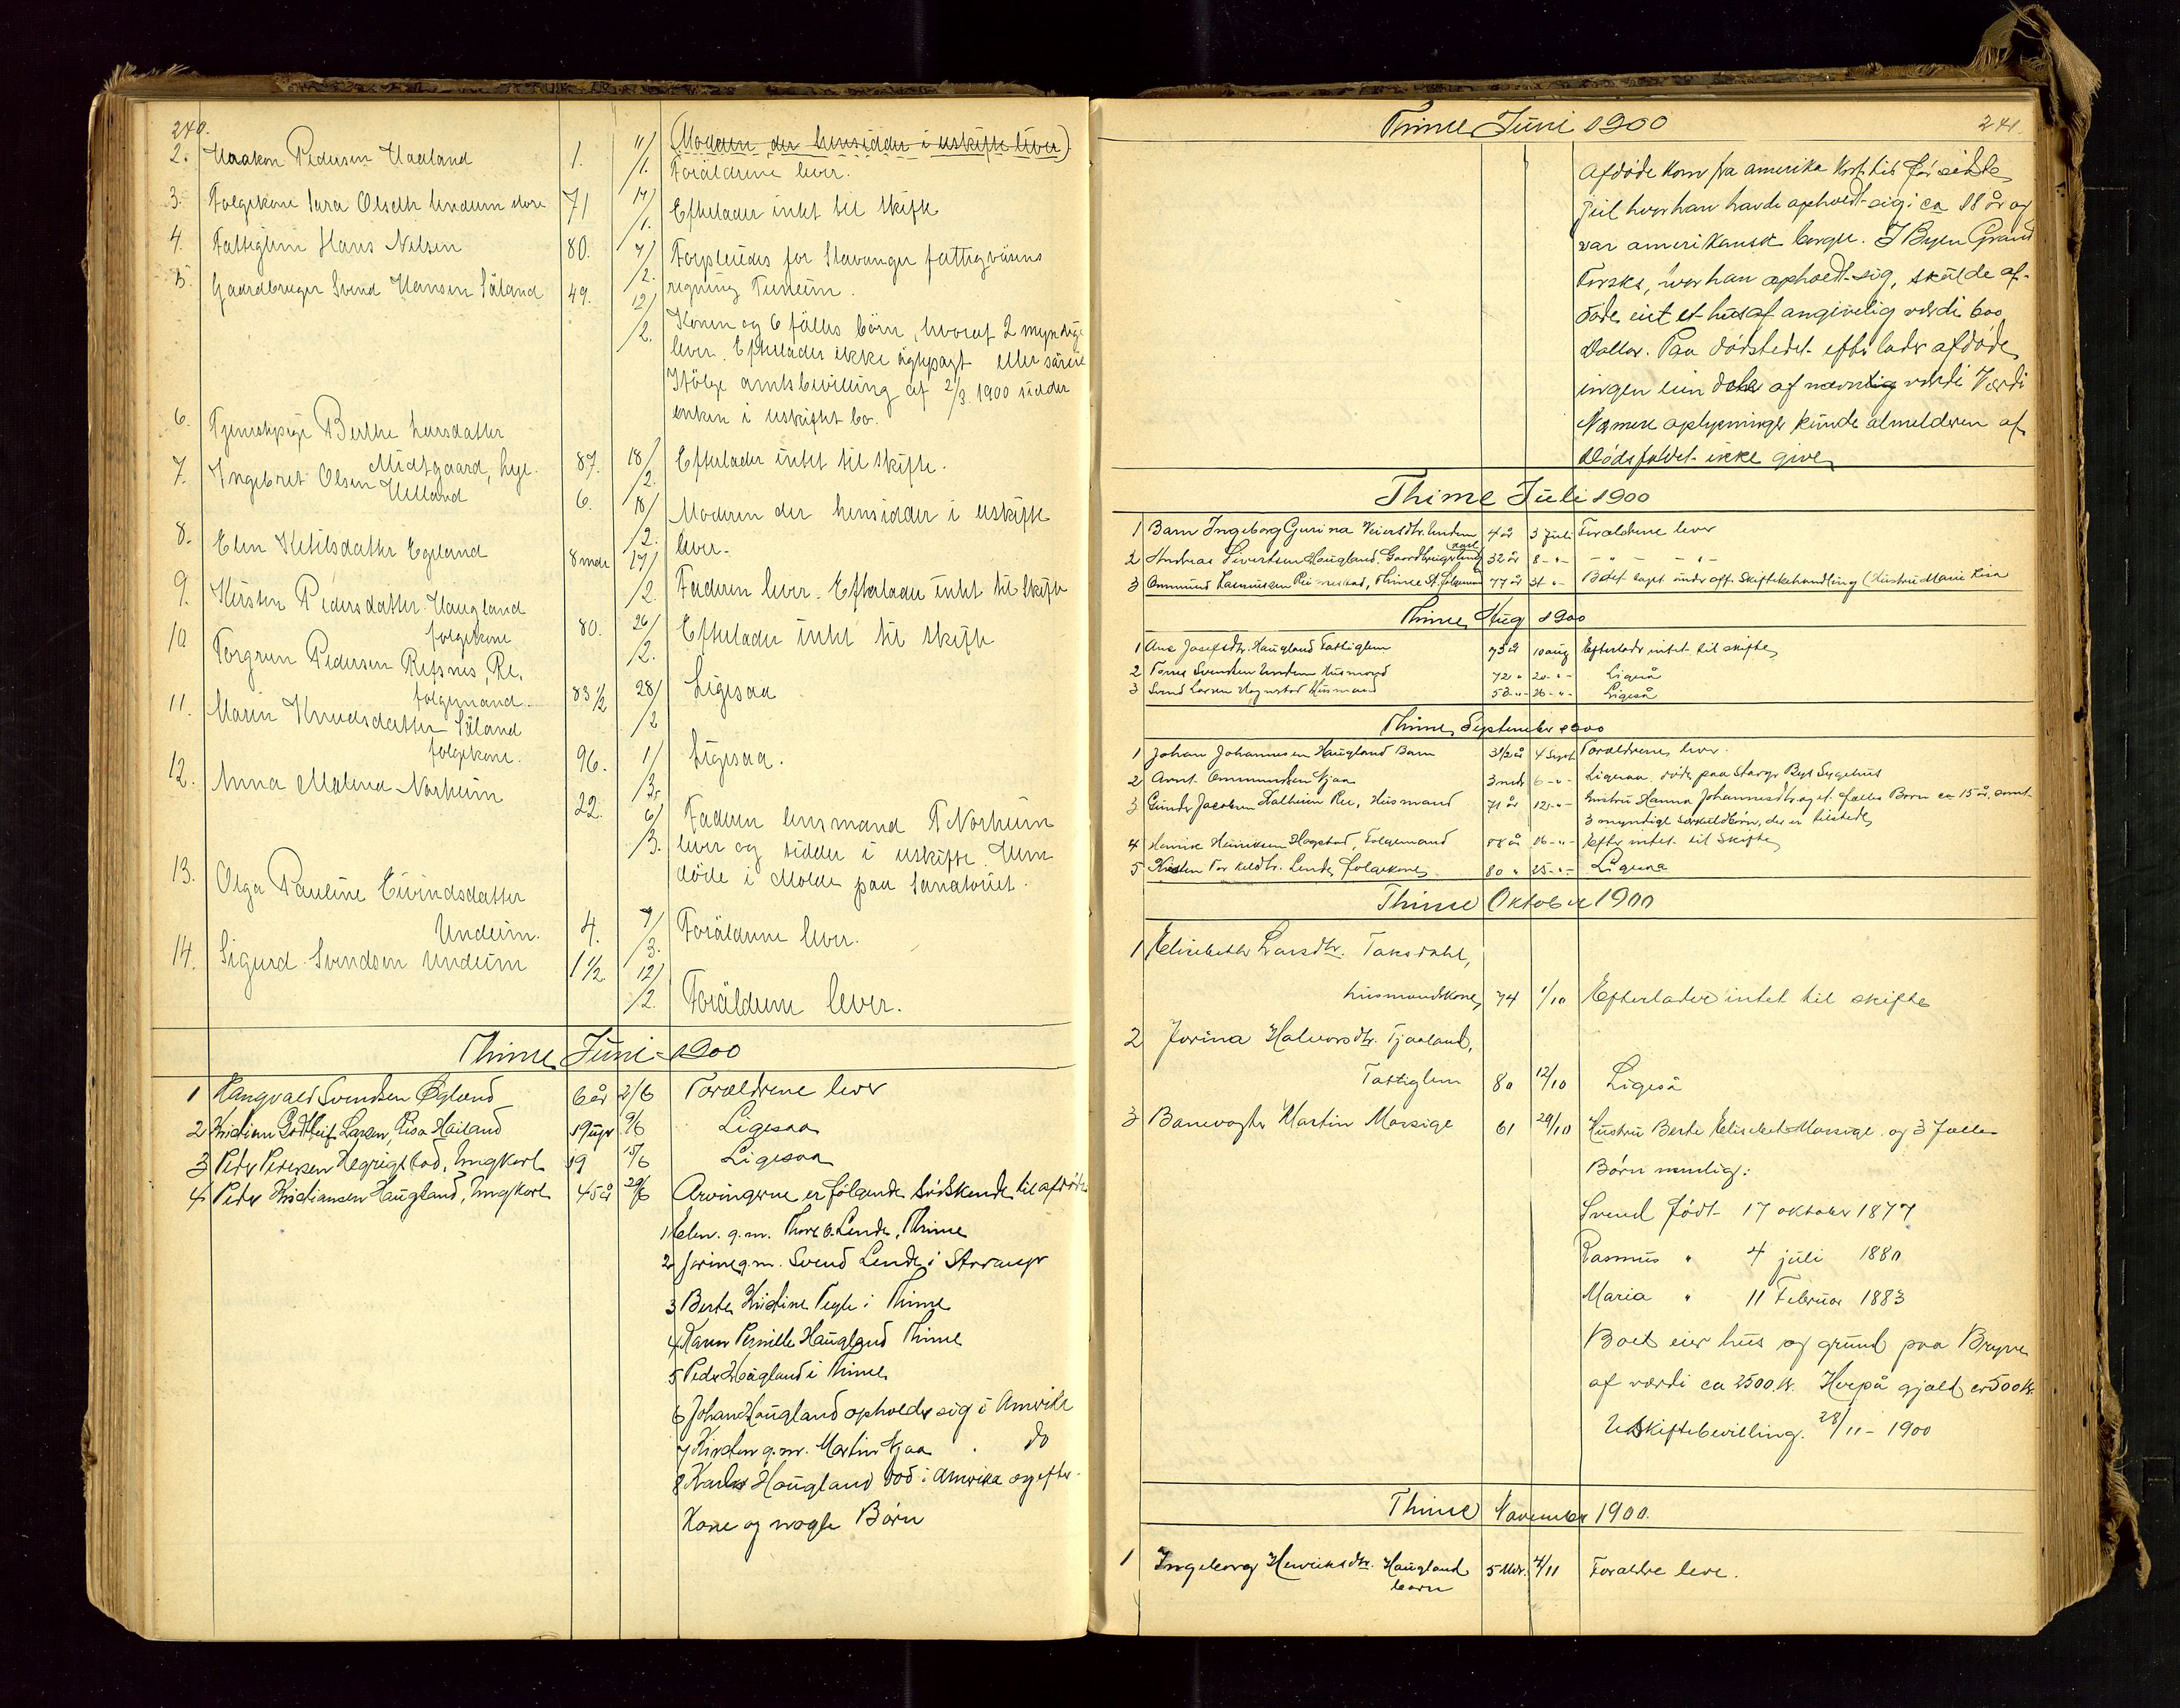 240.
2. Haakon Pedersen Haaland 1. 11/1. (Moderen der hensidder i uskifte lever)
Forældrene lever.
3. Folgekone Sara Olsdtr Undeim store 71 14/1. Efterlader intet til skifte
4. Fattiglem Hans Nilsen 80. 7/2. Forpleiedes for Stavanger fattigvæsens
regning Tuneim.
5. Gaardbruger Svend Hansen Säland 49. 12/2. Konen og 6 fälles börn, hvoraf 2 myndige
lever. Efterlader ikke ägtepagt eller säreie
Ifölge amtsbevilling af 2/3 1900 sidder
enken i uskiftet bo.
6. Tjenestepige Berthe Larsdatter
Midtgaard, Lye. 87. 18/2. Efterlader intet til skifte.
7. Ingebret Olsen Helland 6. 18/2. Moderen der hensidder i uskifte
lever.
8. Elen Ketilsdatter Egeland 8 mdr 17/2. Faderen lever. Efterlader intet til skifte
9. Kirsten Pedersdatter Haugland
folgekone 80. 26/2. Efterlader intet til skifte
10 Torgrun Pedersen Refsnes, Re,
folgemand. 83 1/2 28/2 Ligesaa
11. Maren Knudsdatter Säland
folgekone. 96. 1/3. Ligesaa.
12. Anna Malena Norheim 22. 6/3. Faderen lensmand T Norheim
lever og sidder i uskifte. Hun
döde i Molde paa Sanatoriet.
13. Olga Pauline Eivindsdatter
Undeim. 4. 7/3. Forældrene lever.
14. Sigurd Svendsen Undeim 1 1/2. 12/2. Foräldrene lever.
Thime Juni 1900
1 Rangvald Svendsen Øgland 6 år 2/6 Forældrene lever
2 Kristian Gotleif Larsen, Risa Hailand 19 9/6 Ligesaa
3 Peder Pedersen Hegrigstad, Ungkarl 19 15/6 Ligesaa
4 Peder Kristiansen Haugland, Ungkarl 45 å 29/6 Arvingerne er følgende Sødskende til afdøde
1 Elen. g.m. Thore O. Lende, Thime
2 Jorine g.m. Svend Lende i Stavanger
3 Berte Kristine Tegle i Thime
4 Karen Pernille Haugland Thime
5 Peder Haugland i Thime
6 Johan Haugland opholder sig i Amerika
7 Kirsten g.m. Martin Njaa . do
8 Karl Haugland død i Amerika og efter-
Kone og nogle Børn
Thime Juni 1900 241.
Afdøde kom fra amerika kort tid før sidste
Juil hvor han havde opholdt sig i ca 18 år og
var amerikansk borger. I Byen Grand
Forsks, hvor han opholdt sig, skulde af-
døde eiet et hus af angivelig værdi 600
Dollar. Paa dødsstedet efterlader afdøde
ingen eiendele af nævnlig værdi Værdi
Nærmere oplysninger kunde anmelderen af
dødsfaldet ikke give
Thime Juli 1900
1 Barn Ingeborg Gurina Veiersdtr. Undem 4 år 3 Juli Forældrene lever
2 Andreas Sivertsen Haugland, Gaardbruger 32 år 8 - " - - " - - " -
3 Ommund Rasmussen Thime St. 77 år 31 " - Boet taget under off. Skiftebehandling (Hustru Marie Lisa
Thime Aug 1900
1 Ane Josefsdtr. Haugland Fattiglem 75 å 10 aug Efterlader intet til skifte
2 Tønes Svendsen Undem Husmand 72 " 20 - " - Ligeså
3 Svend Larsen Hognstad Husmand 52 " 26 - " - Ligeså
Thime September 1900
1 Johan Johannesen Haugland Barn 3 1/2 å 4 Sept Forældrene lever.
2 Arnt Ommundsen Njaa 3 mdr 6 - " - Ligesaa døde paa Stavgr Bys Sygehus
3 Gunder Jacobsen Kalheim Re, Husmand 71 år 12 - " - Hustru Hanna Johannesdtr og et fælles Barn ca 15 år, samt
3 myndige særkuldbørn, der er tilstede
4 Henrik Henriksen Hognstad, Folgemand 88 å 16 - " - Efter intet til Skifte
5 Kirsten Torkildtr. Lende folgekone 80 " 25 - " - Ligesaa
Thime Oktober 1900
1 Elisabeth Larsdtr. Taksdahl,
husmandskone, 74 1/10 Efterlader intet til skifte
2 Jorina Halvorsdtr. Tjaaland,
Fattiglem 80 12/10 Ligeså
3 Banevogter Martin Mossige 61 29/10 Hustru Berte Elisebet Mossige og 3 Fælles
Børn nemlig:
Svend født 17 oktober 1877
Rasmus " 4 juli 1880
Maria " 11 Februar 1883
Boet eier hus og grund paa Bryne
af værdi ca 2500 kr. Herpå gjæld er 500 kr.
Uskiftebevilling. 28/11 - 1900
Thime November 1900.
1 Ingeborg Henriksdtr. Haugland
barn 5 Mdr. 4/11 Forældre leve.